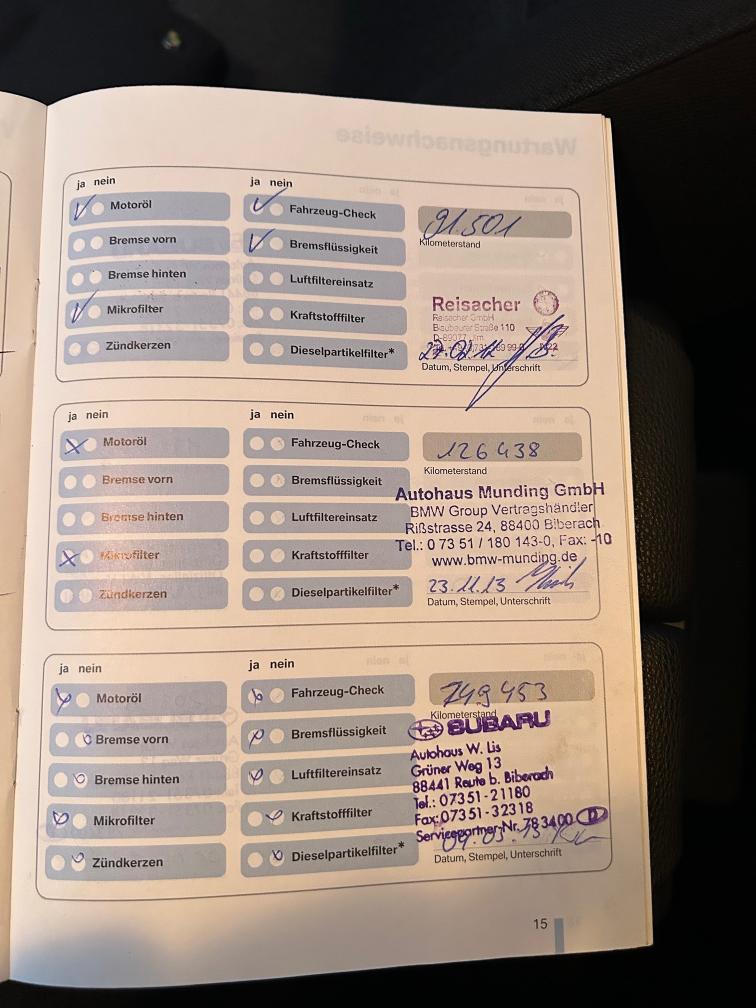 ja nein
ja nein
Motoröl
Fahrzeug-Check
91.501
Bremse vorn
Bremsflüssigkeit
Kilometerstand
Bremse hinten
Luftfiltereinsatz
Mikrofilter
Kraftstofffilter
Reisacher
Reisacher GmbH
Blaubeurer Straße 110
Zündkerzen
Dieselpartikelfilter*
Datum, Stempel, Unterschrift
ja nein
ja nein
Motoröl
Fahrzeug-Check
126 438
Kilometerstand
Bremse vorn
Bremsflüssigkeit
Autohaus Munding GmbH
BMW Group Vertragshändler
Bremse hinten
Luftfiltereinsatz
Rißstrasse 24, 88400 Biberach
Tel.: 0 73 51 / 180 143-0, Fax: -10
Mikrofilter
Kraftstofffilter
www.bmw-munding.de
Zündkerzen
Dieselpartikelfilter*
23.11.13
Datum, Stempel, Unterschrift
ja nein
ja nein
Motoröl
Fahrzeug-Check
149 453
Kilometerstand
SUBARU
Bremse vorn
Bremsflüssigkeit
Autohaus W. Lis
Grüner Weg 13
Bremse hinten
Luftfiltereinsatz
88441 Reute b. Biberach
Tel.: 07351-21180
Mikrofilter
Kraftstofffilter
Fax: 07351-32318
Servicepartner-Nr. 783400 D
Zündkerzen
Dieselpartikelfilter*
Datum, Stempel, Unterschrift
15